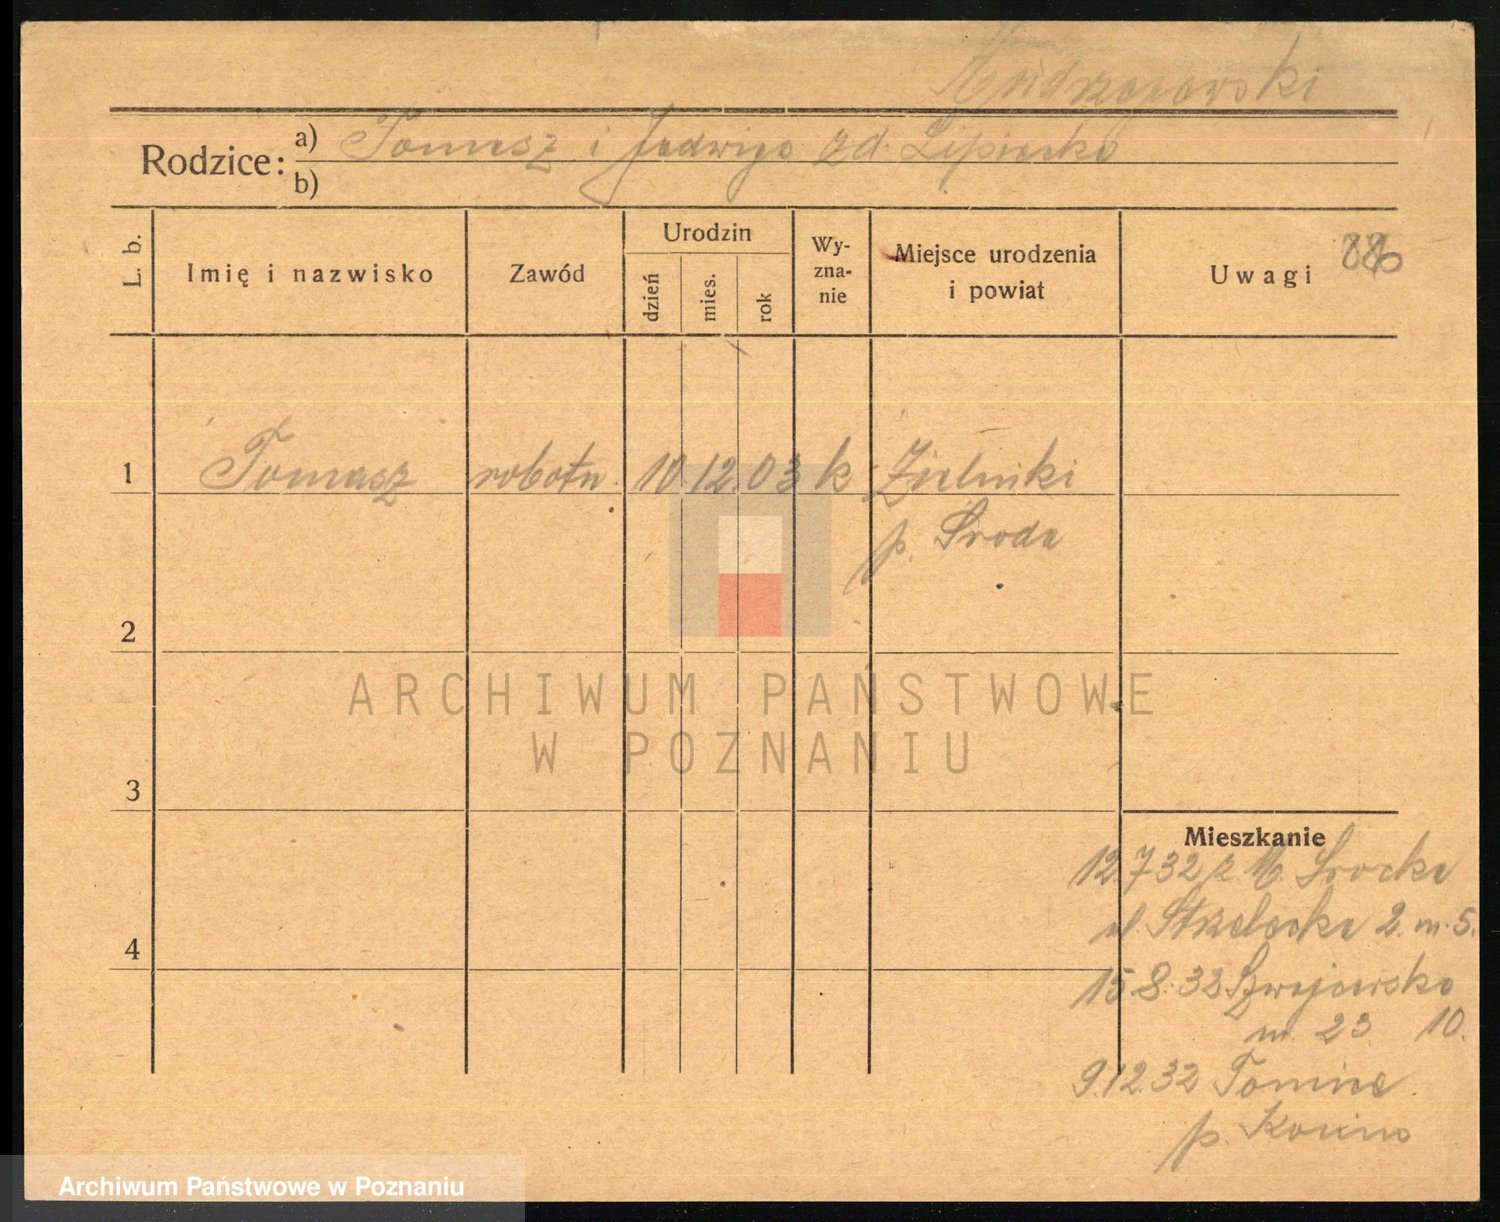 Rodzice:
a) Tomasz i Jadwiga zd. Lipiecka
b)
L. b.
Imię i nazwisko
Zawód
Urodzin
dzień
mies.
rok
Wy-
zna-
nie
Miejsce urodzenia
i powiat
Uwagi
1 Tomasz robotn. 10 12 03 k Zielniki
p. Środa
2
ARCHIWUM PAŃSTWOWE
W POZNANIU
3
Mieszkanie
12.7.32 z
ul Strzelecka 2. m. 5.
15 8. 32 Szwajcarska
m. 23 10.
9.12.32 Tomice
p.
4
Archiwum Państwowe w Poznaniu